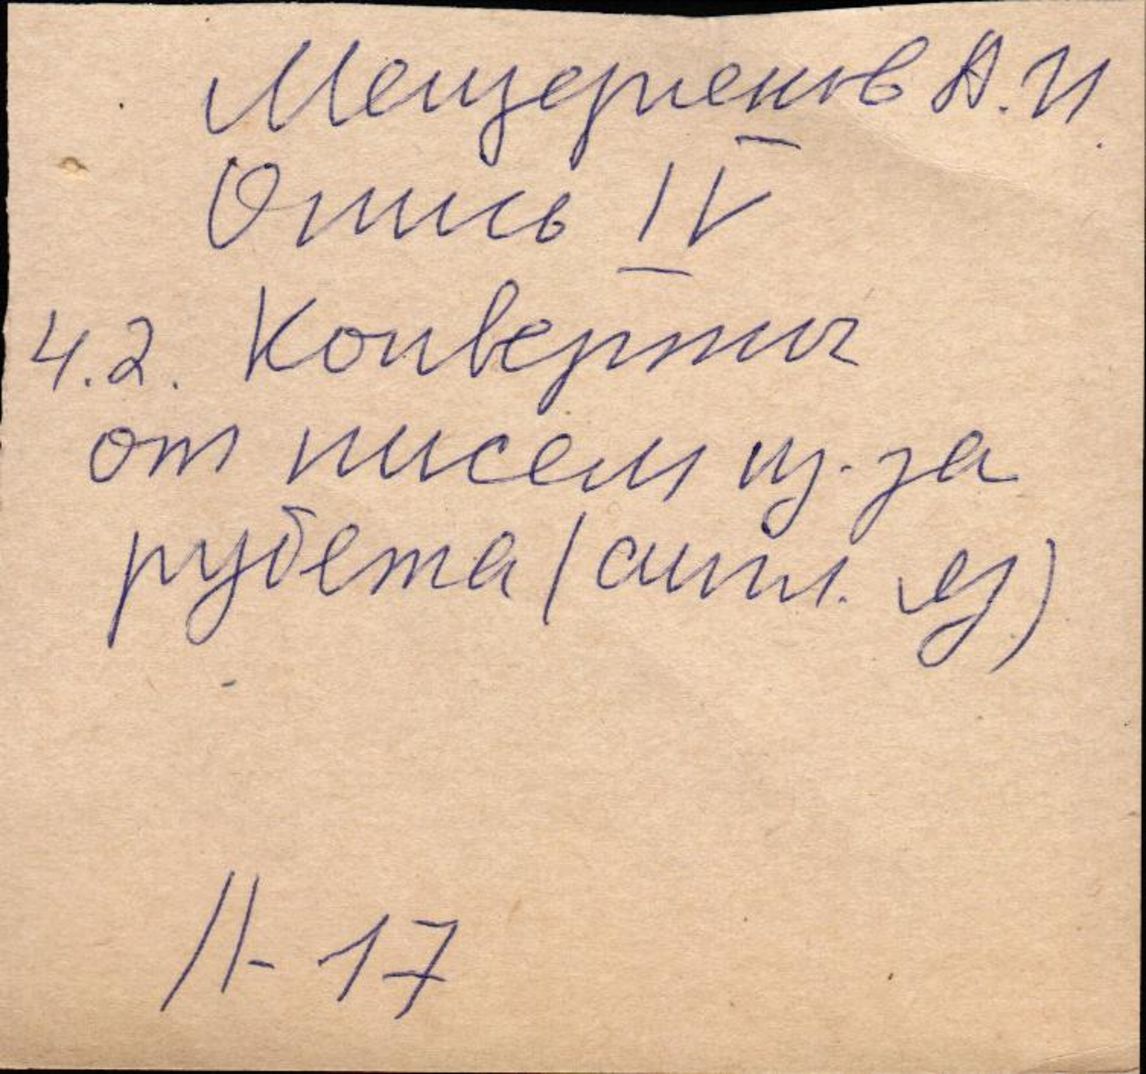 Мещеряков А.И.
Опись IV
4.2. Конверты
от писем из-за
рубежа (англ. яз)
Л-17